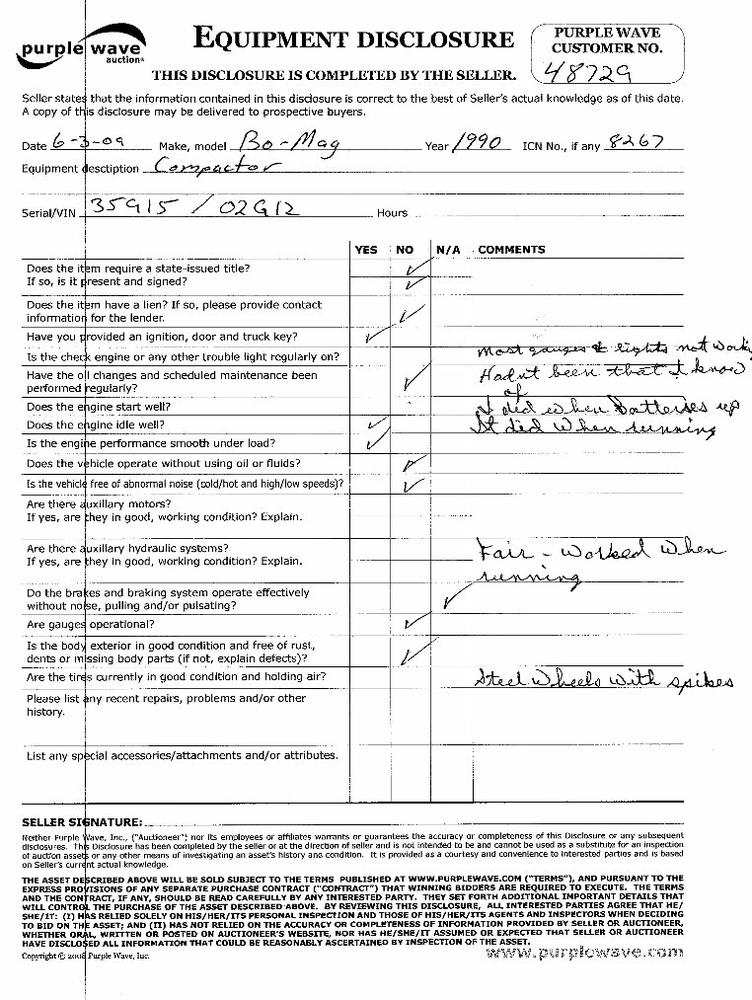 purple wave
auction®
EQUIPMENT DISCLOSURE
THIS DISCLOSURE IS COMPLETED BY THE SELLER.
PURPLE WAVE
CUSTOMER NO.
48729
Seller states that the information contained in this disclosure is correct to the best of Seller's actual knowledge as of this date.
A copy of this disclosure may be delivered to prospective buyers.
Date 6-3-09 Make, model Bo-Mag Year 1990 ICN No., if any 8267
Equipment desctiption Compactor
Serial/VIN 35G15 / 02G12 Hours
YES NO N/A COMMENTS
Does the item require a state-issued title? ✓
If so, is it present and signed? ✓
Does the item have a lien? If so, please provide contact
information for the lender. ✓
Have you provided an ignition, door and truck key? ✓
Is the check engine or any other trouble light regularly on? Most gauges & lights not work
Have the oil changes and scheduled maintenance been
performed regularly? ✓ Hadn't been that I know
of
Does the engine start well? It did when batteries up
Does the engine idle well? ✓ It did when running
Is the engine performance smooth under load? ✓
Does the vehicle operate without using oil or fluids? ✓
Is the vehicle free of abnormal noise (cold/hot and high/low speeds)? ✓
Are there auxillary motors?
If yes, are they in good, working condition? Explain.
Are there auxillary hydraulic systems?
If yes, are they in good, working condition? Explain. Fair - Worked when
running
Do the brakes and braking system operate effectively
without noise, pulling and/or pulsating? ✓
Are gauges operational? ✓
Is the body exterior in good condition and free of rust,
dents or missing body parts (if not, explain defects)? ✓
Are the tires currently in good condition and holding air? Steel Wheels with spikes
Please list any recent repairs, problems and/or other
history.
List any special accessories/attachments and/or attributes.
SELLER SIGNATURE:
Neither Purple Wave, Inc., ("Auctioneer") nor its employees or affiliates warrants or guarantees the accuracy or completeness of this Disclosure or any subsequent
disclosures. This Disclosure has been completed by the seller or at the direction of seller and is not intended to be and cannot be used as a substitute for an inspection
of auction assets or any other means of investigating an asset's history and condition. It is provided as a courtesy and convenience to interested parties and is based
on Seller's current actual knowledge.
THE ASSET DESCRIBED ABOVE WILL BE SOLD SUBJECT TO THE TERMS PUBLISHED AT WWW.PURPLEWAVE.COM ("TERMS"), AND PURSUANT TO THE
EXPRESS PROVISIONS OF ANY SEPARATE PURCHASE CONTRACT ("CONTRACT") THAT WINNING BIDDERS ARE REQUIRED TO EXECUTE. THE TERMS
AND THE CONTRACT, IF ANY, SHOULD BE READ CAREFULLY BY ANY INTERESTED PARTY. THEY SET FORTH ADDITIONAL IMPORTANT DETAILS THAT
WILL CONTROL THE PURCHASE OF THE ASSET DESCRIBED ABOVE. BY REVIEWING THIS DISCLOSURE, ALL INTERESTED PARTIES AGREE THAT HE/
SHE/IT: (I) HAS RELIED SOLELY ON HIS/HER/ITS PERSONAL INSPECTION AND THOSE OF HIS/HER/ITS AGENTS AND INSPECTORS WHEN DECIDING
TO BID ON THE ASSET; AND (II) HAS NOT RELIED ON THE ACCURACY OR COMPLETENESS OF INFORMATION PROVIDED BY SELLER OR AUCTIONEER,
WHETHER ORAL, WRITTEN OR POSTED ON AUCTIONEER'S WEBSITE, NOR HAS HE/SHE/IT ASSUMED OR EXPECTED THAT SELLER OR AUCTIONEER
HAVE DISCLOSED ALL INFORMATION THAT COULD BE REASONABLY ASCERTAINED BY INSPECTION OF THE ASSET.
Copyright © 2008 Purple Wave, Inc. www.purplewave.com